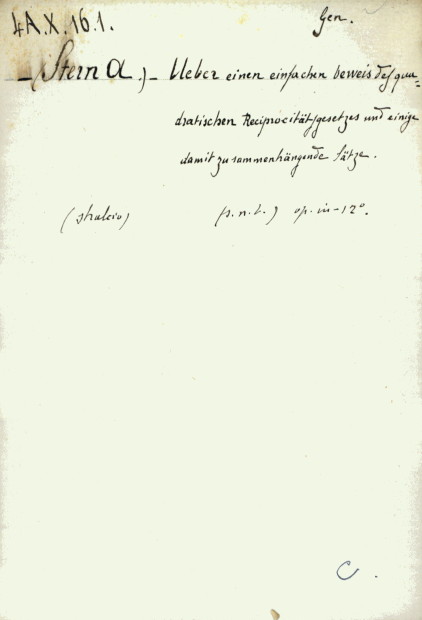 4A.X.16.1.
Gen.
- (Stern A.) - Ueber einen einfachen beweis des qua-
dratischen Reciprocitätsgesetzes und einige
damit zusammenhängende Sätze.
(stralcio) (s.n.t.) op. in-12º.
C.